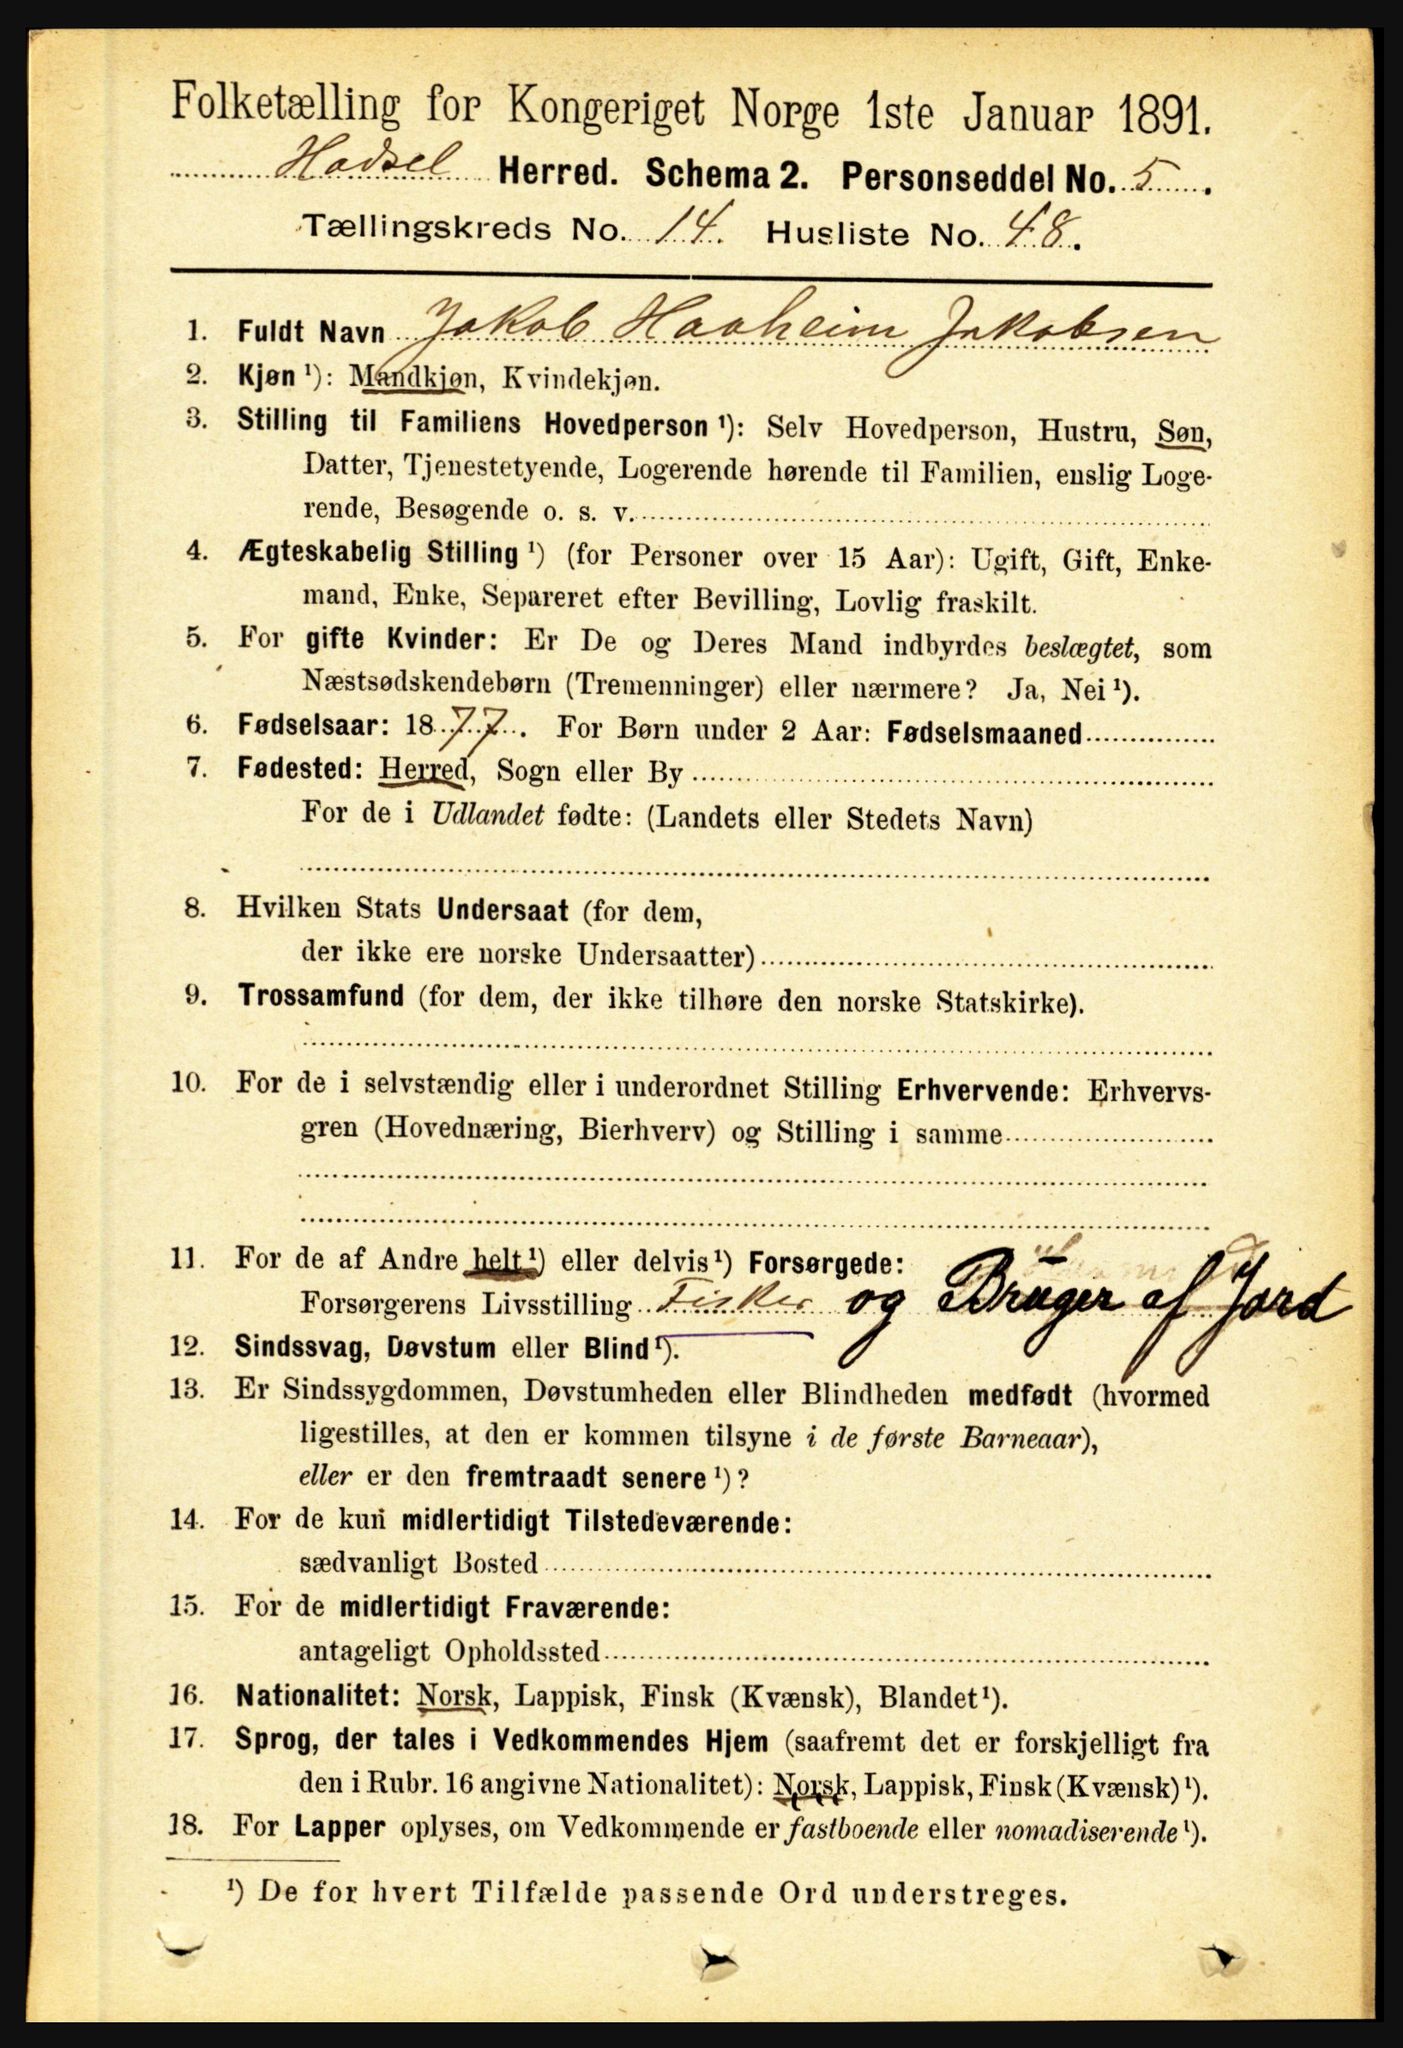 Folketælling for Kongeriget Norge 1ste Januar 1891.
Hadsel Herred. Schema 2. Personseddel No. 5.
Tællingskreds No. 14. Husliste No. 48.
1. Fuldt Navn Jakob Haaheim Jakobsen
2. Kjøn ¹): Mandkjøn, Kvindekjøn.
3. Stilling til Familiens Hovedperson ¹): Selv Hovedperson, Hustru, Søn,
Datter, Tjenestetyende, Logerende hørende til Familien, enslig Loge-
rende, Besøgende o. s. v.
4. Ægteskabelig Stilling ¹) (for Personer over 15 Aar): Ugift, Gift, Enke-
mand, Enke, Separeret efter Bevilling, Lovlig fraskilt.
5. For gifte Kvinder: Er De og Deres Mand indbyrdes beslægtet, som
Næstsødskendebørn (Tremenninger) eller nærmere? Ja, Nei ¹).
6. Fødselsaar: 1877. For Børn under 2 Aar: Fødselsmaaned
7. Fødested: Herred, Sogn eller By
For de i Udlandet fødte: (Landets eller Stedets Navn)
8. Hvilken Stats Undersaat (for dem,
der ikke ere norske Undersaatter)
9. Trossamfund (for dem, der ikke tilhøre den norske Statskirke).
10. For de i selvstændig eller i underordnet Stilling Erhvervende: Erhvervs-
gren (Hovednæring, Bierhverv) og Stilling i samme
11. For de af Andre helt ¹) eller delvis ¹) Forsørgede:
Forsørgerens Livsstilling Fisker og Bruger af Jord
12. Sindssvag, Døvstum eller Blind ¹).
13. Er Sindssygdommen, Døvstumheden eller Blindheden medfødt (hvormed
ligestilles, at den er kommen tilsyne i de første Barneaar),
eller er den fremtraadt senere ¹)?
14. For de kun midlertidigt Tilstedeværende:
sædvanligt Bosted
15. For de midlertidigt Fraværende:
antageligt Opholdssted
16. Nationalitet: Norsk, Lappisk, Finsk (Kvænsk), Blandet ¹).
17. Sprog, der tales i Vedkommendes Hjem (saafremt det er forskjelligt fra
den i Rubr. 16 angivne Nationalitet): Norsk, Lappisk, Finsk (Kvænsk) ¹).
18. For Lapper oplyses, om Vedkommende er fastboende eller nomadiserende ¹).
¹) De for hvert Tilfælde passende Ord understreges.